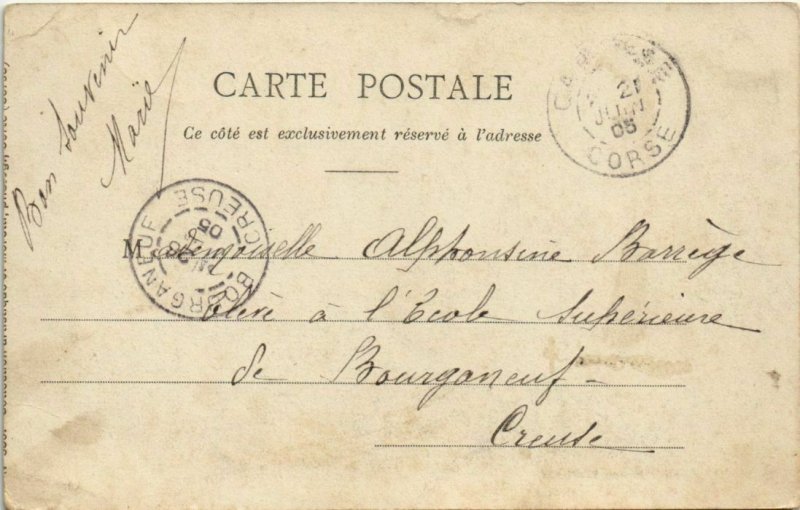 Bon Souvenir
Marie
CARTE POSTALE
Ce côté est exclusivement réservé à l'adresse
21
JUIN
05
CORSE
BOURGANEUF
CREUSE
05
Mademoiselle Alphonsine Barrège
Elève à l'Ecole Supérieure
de Bourganeuf-
Creuse